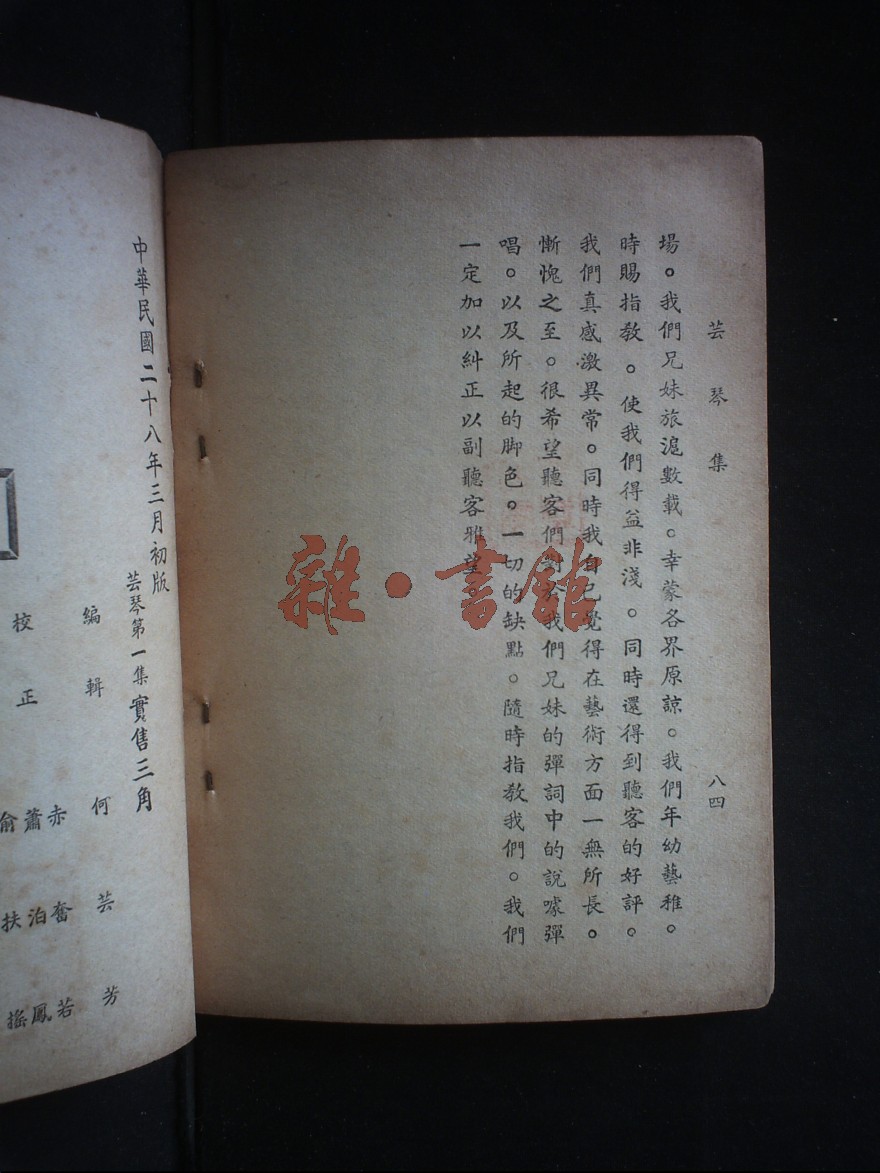 芸琴集
八四
場。我們兄妹旅滬數載。幸蒙各界原諒。我們年幼藝稚。
時賜指教。使我們得益非淺。同時還得到聽客的好評。
我們真感激異常。同時我自己覺得在藝術方面一無所長。
慚愧之至。很希望聽客們對於我們兄妹的彈詞中的說噱彈
唱。以及所起的脚色。一切的缺點。隨時指教我們。我們
一定加以糾正以副聽客雅望
中華民國二十八年三月初版
芸琴第一集實售三角
編輯 何芸芳
校正 赤奮若
蕭泊鳳
俞扶搖
雜·書館